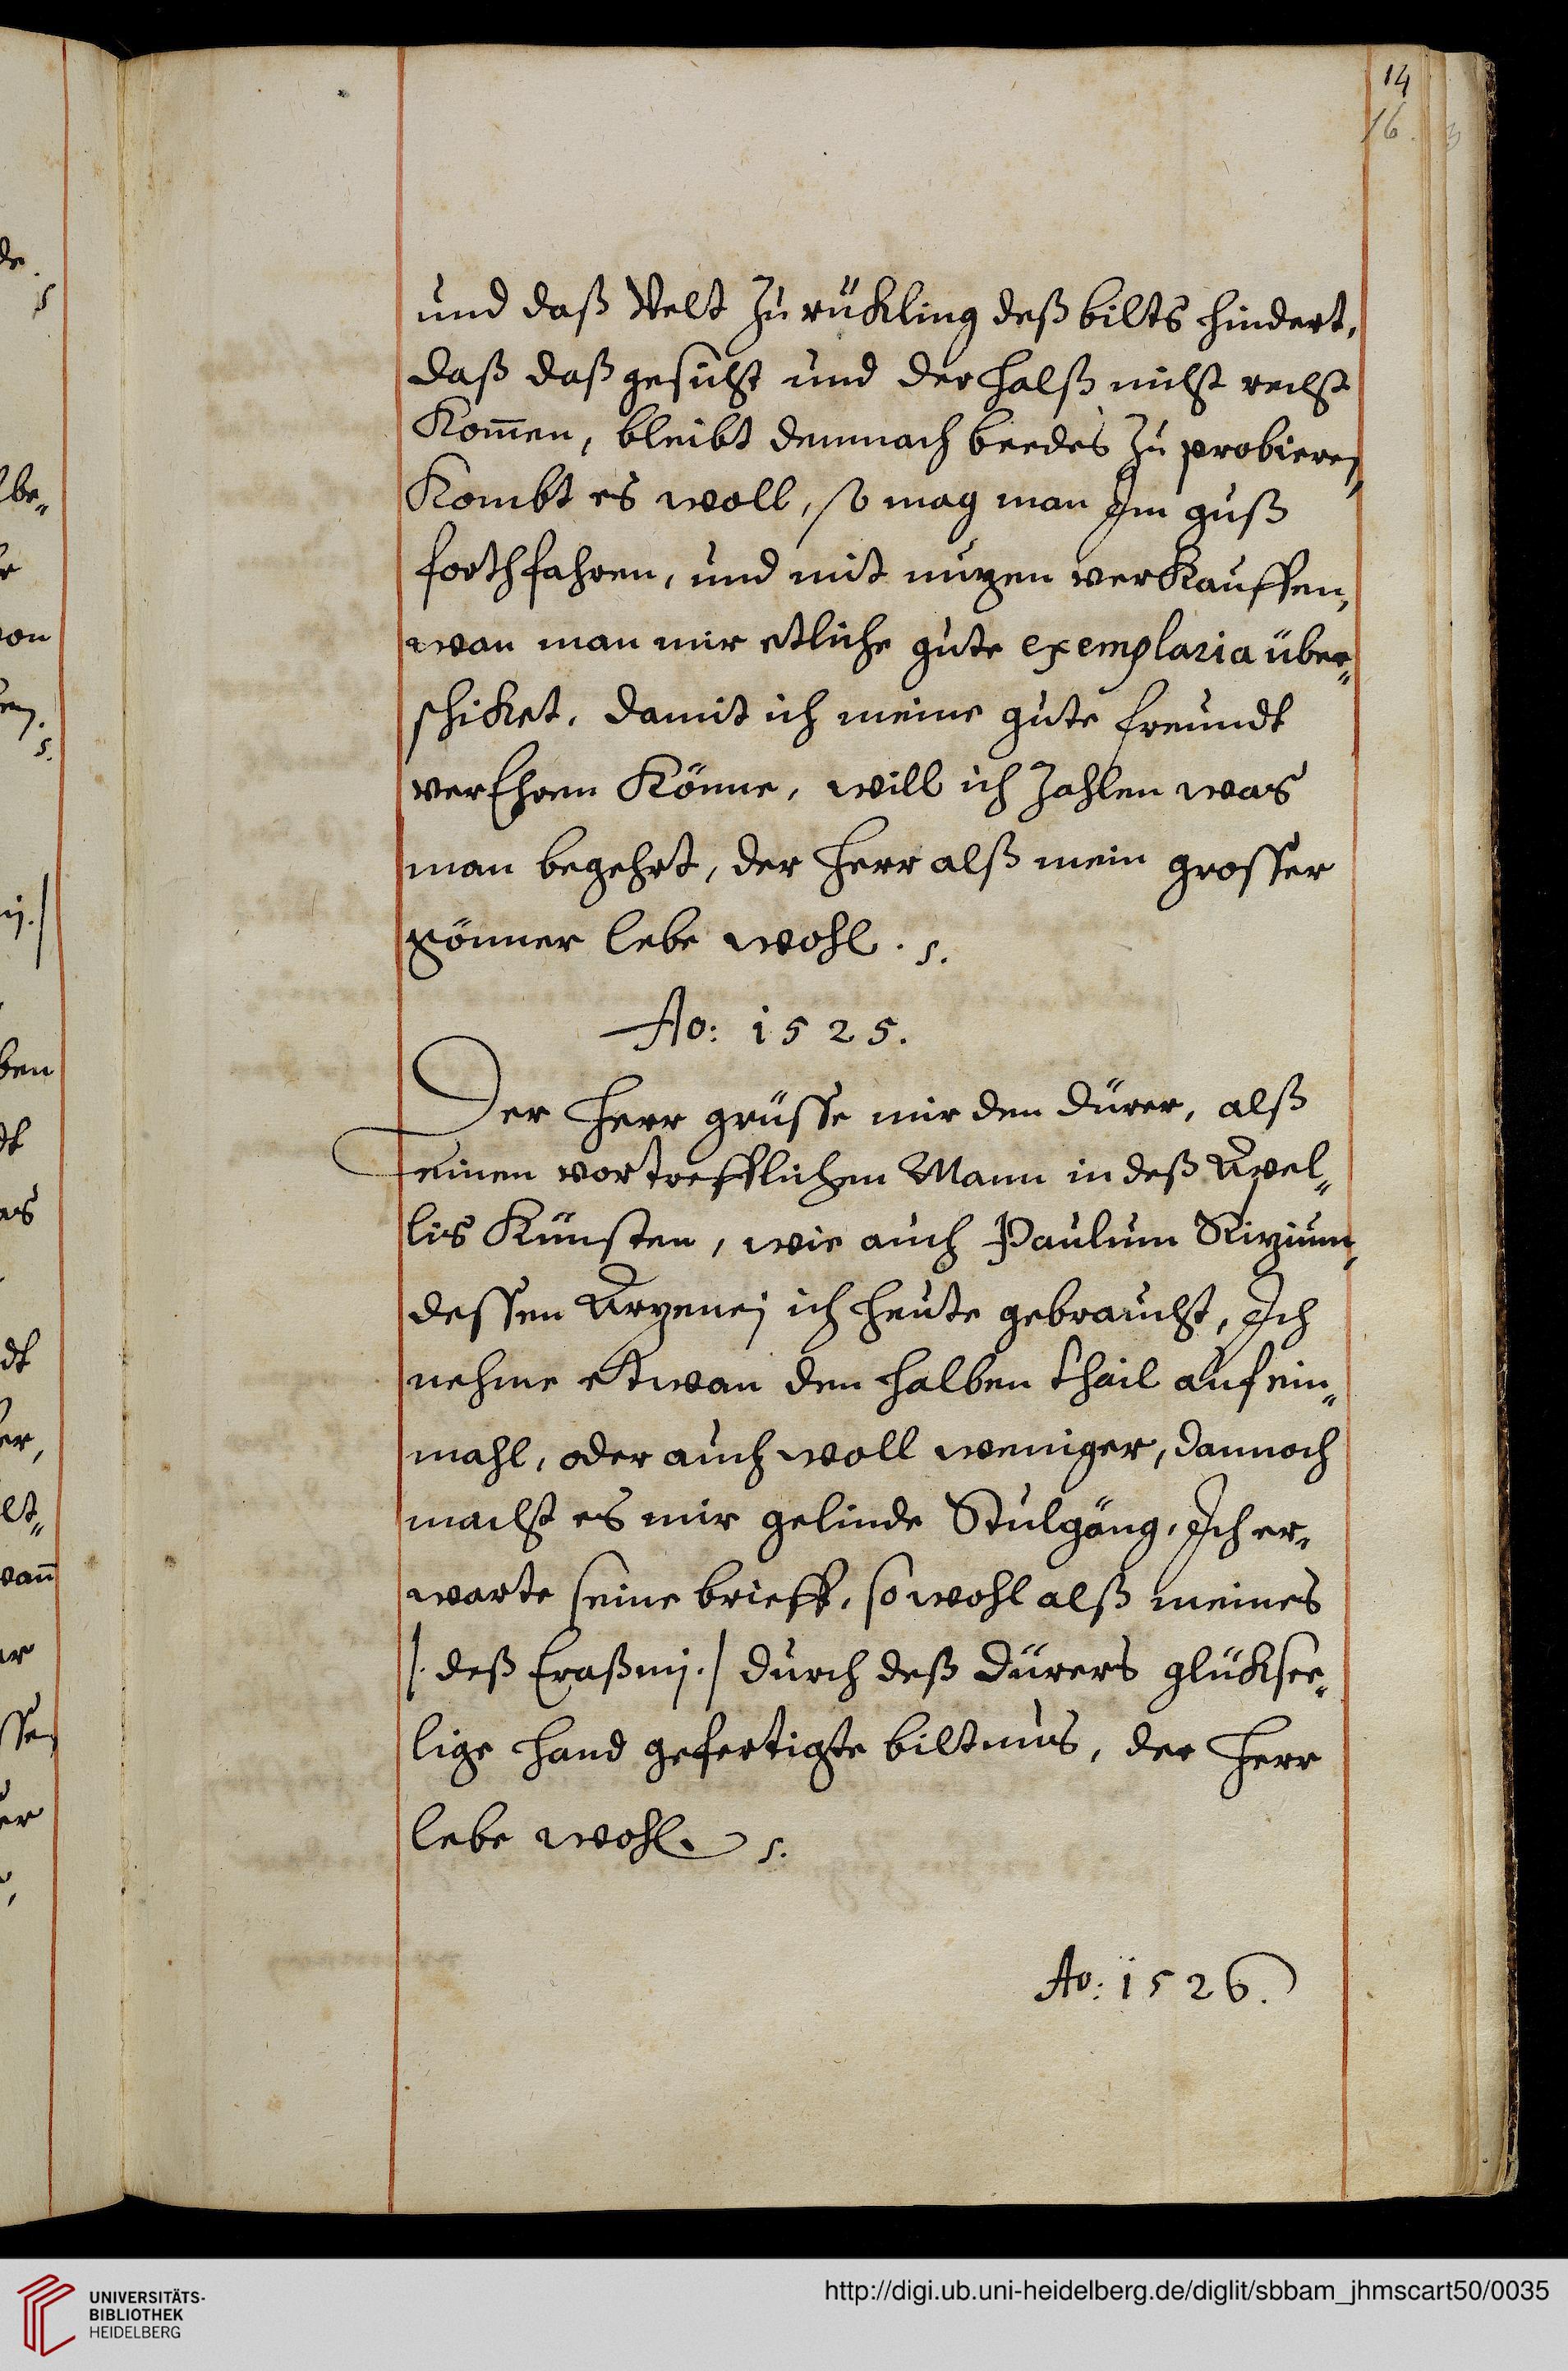 14
16.
und daß Velt zu rükling deß bilts hindert,
daß daß gesicht und der halß nicht recht
Kom̄en, bleibt demnach beedes zu probieren,
Kombt es woll, so mag man Im guß
forthfahren, und mit nuzen verkauffen,
wan man mir etliche gute exemplaria über„
schiket, damit ich meine gute freundt
verEhren Könne, will ich zahlen was
man begehrt, der Herr alß mein grosser
gönner lebe wohl. s.
Ao: 1525.
Der Herr grüsse mir den Dürer, alß
einen vortrefflichen Mann in deß Apel„
lis Künsten, wie auch Paulum Rizium,
dessen Arzenej ich heute gebraucht, Ich
nehme etwan den halben thail auf ein„
mahl, oder auch woll weniger, dannoch
macht es mir gelinde Stulgäng, Ich er„
warte seine brieff, so wohl alß meines
/. deß Eraßmj. / durch deß Dürers glüksee„
lige hand gefertigte biltnus, der Herr
lebe wohl. s.
Ao: 1526.
de.
s
lbe„
von
s.
ij./
ben
dt
es
dt
er,
lt„
wan̄
ar
ssen
er
UNIVERSITÄTS-
BIBLIOTHEK
HEIDELBERG
http://digi.ub.uni-heidelberg.de/diglit/sbbam_jhmscart50/0035